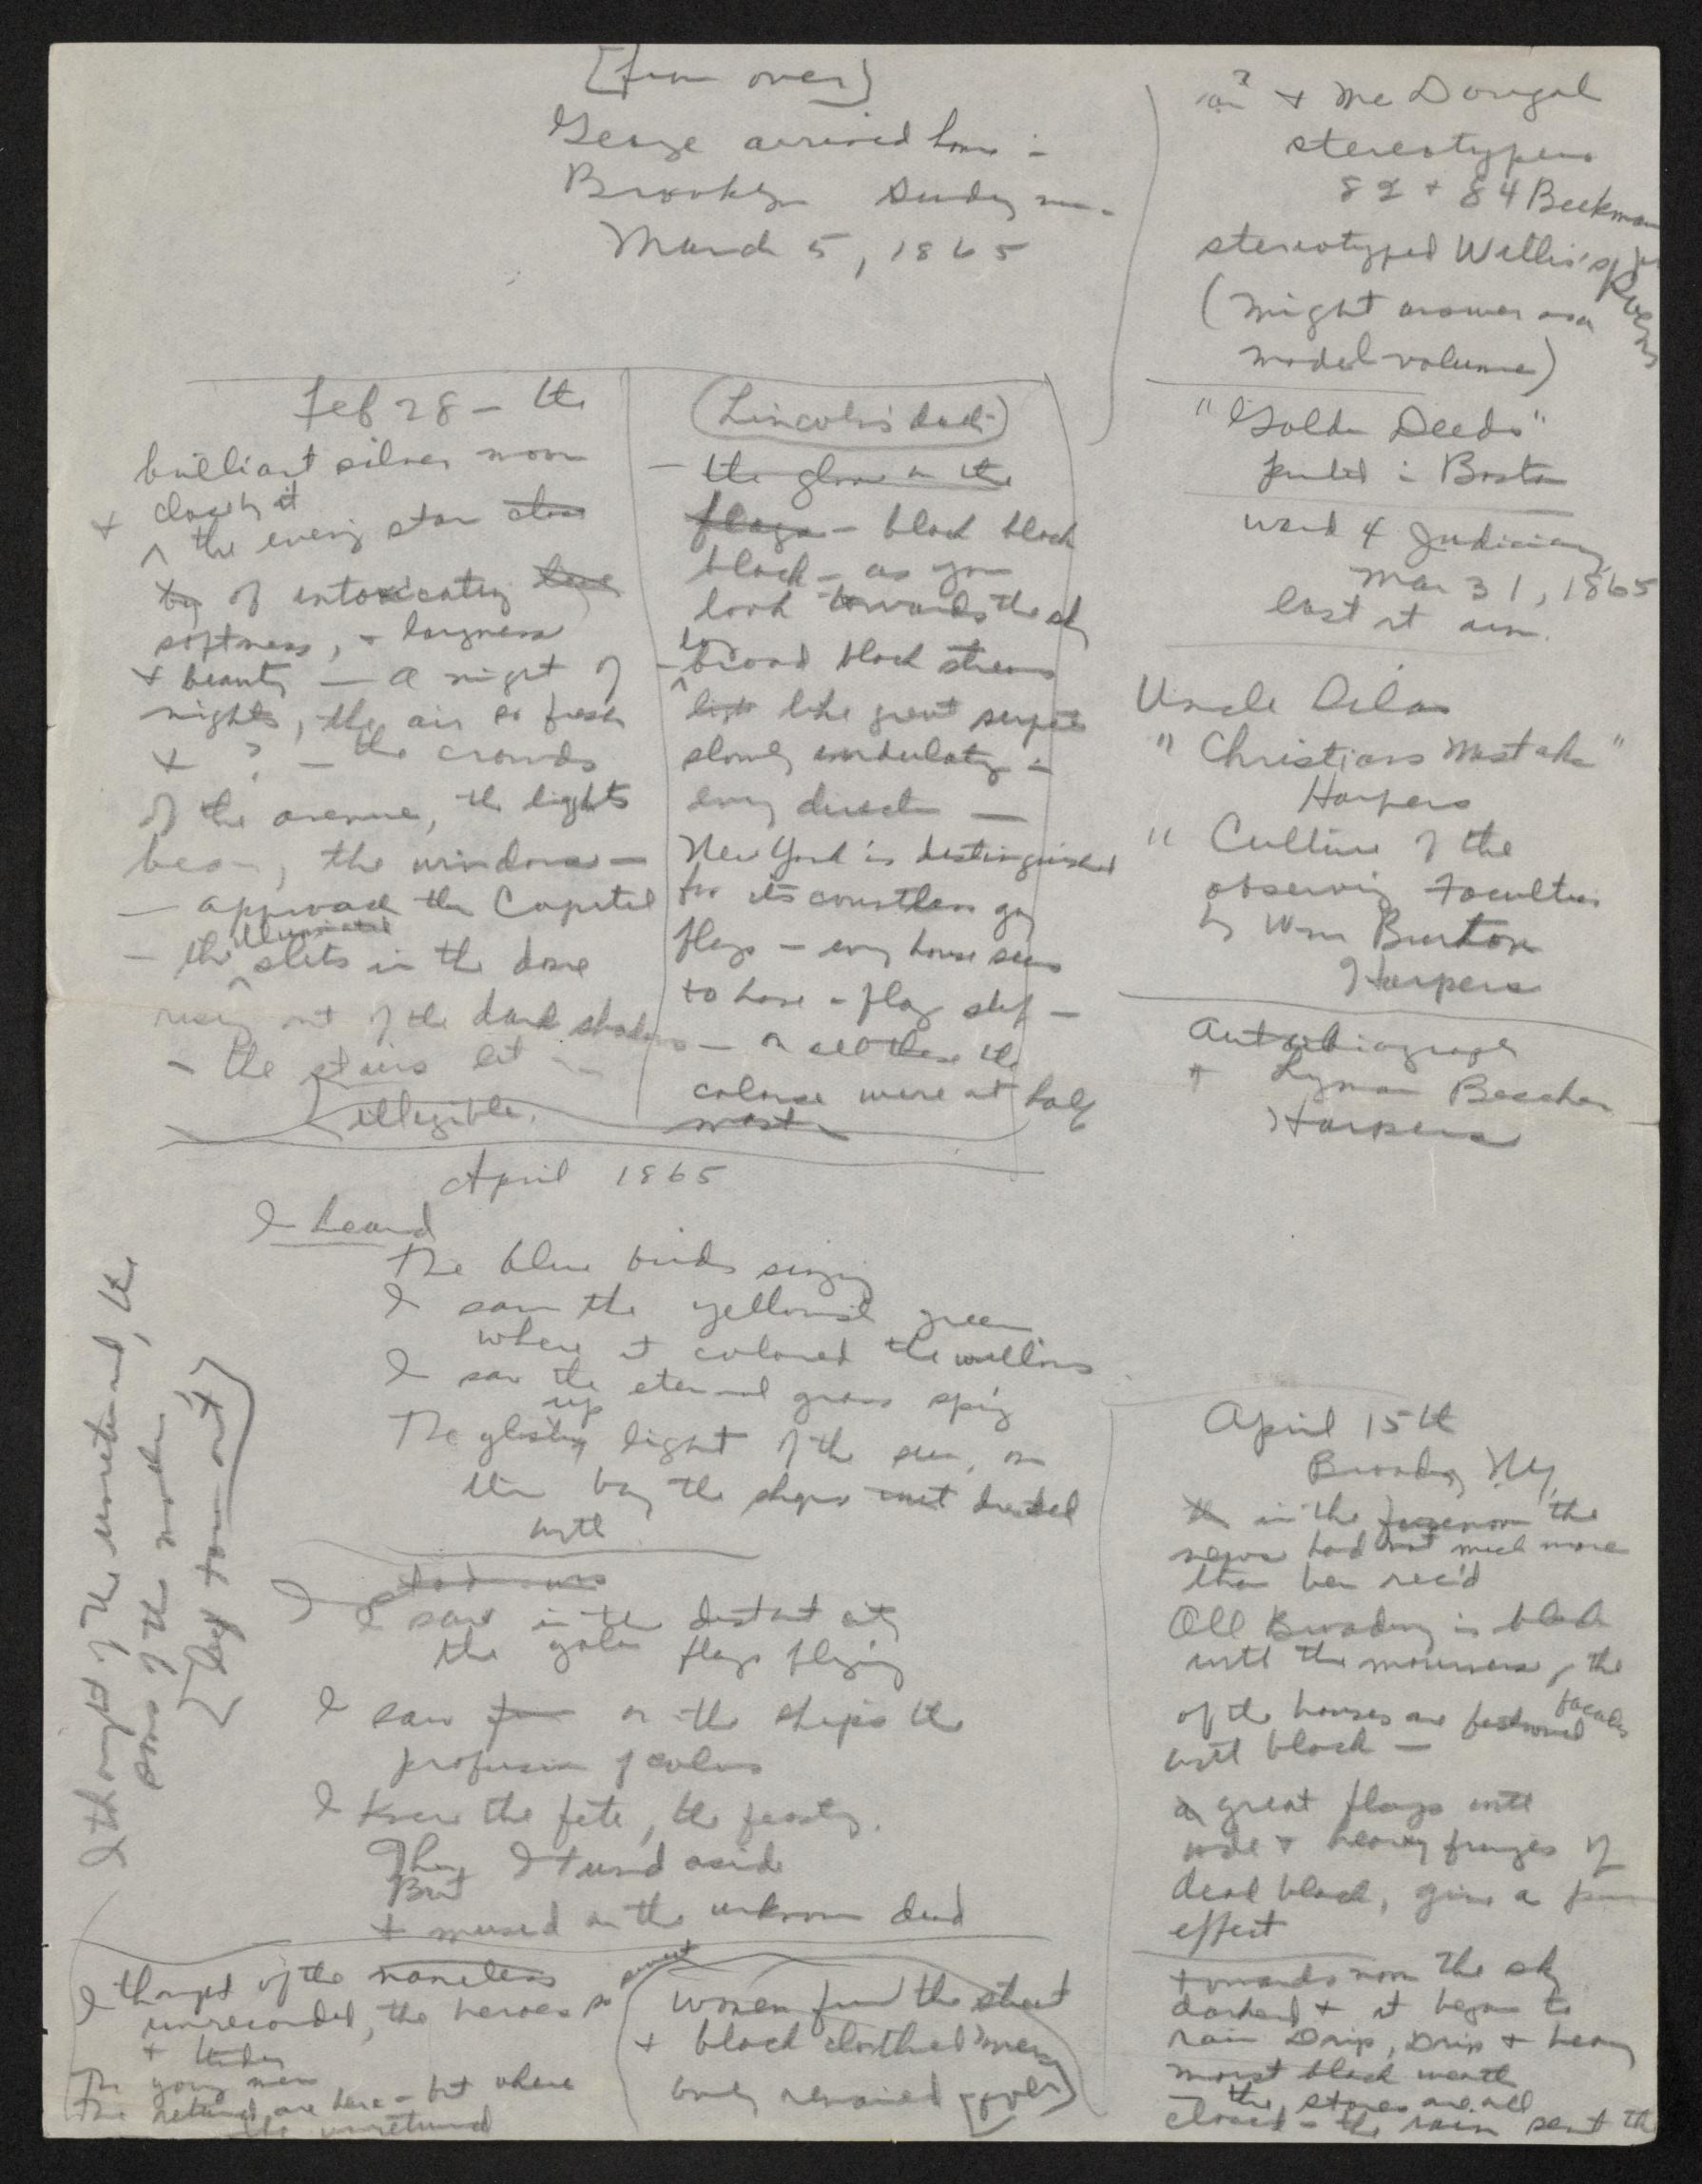 [from over]
George arrived home in
Brooklyn Sunday
March 5, 1865
Feb 28 – the
brilliant silver moon
+ closely it
^ the eveng star close
by of intoxicating
softness, + largeness
+ beauty — a night of
nights, the air so fresh
+ ? — the crowds
of the avenue, the lights
, the windows —
— approach the Capitol
illuminated
— the ^ slits in the dome
rising out of the dark shadows
– the stairs lit –
[illegible.
(Lincoln's death)
— the gloom in the
flags – black black
black – as you
look towards the sky
– ^ broad black streams
like great serpents
slowly undulatg in
every direction —
New York is distinguished
for its countless gay
flags – every house seems
to have a flag staff –
— on all these the
colors were at half
mast –
? + Mc Dougal
stereotypers
82 + 84 Beekman
stereotyped Willis's Poems
(might answer as a
model volume)
"Golden Deeds"
printed in Boston
ward 4 Judiciary
Mar 31, 1865
last at
Uncle Silas
" Christians Mistake "
Harpers
" Culture of the
observing Faculties
by Wm Burton
Harpers
Autobiography
of Lyman Beecher
Harpers
April 1865
I heard
The blue birds singing
I saw the yellowish green
where it colored the willows
I saw the eternal grass spring
up
The glistng light of the sun, on
the bay the ships dressed
with
I
I saw in the distant city
the gala flags flying
I saw on the ships the
profusion of colors
I knew the fete, the feasting.
Then I turnd aside
But
+ mused on the unknown dead
I thought of the nameless
unrecorded, the heroes so
sweet
+ tender
The young men
The returned are here – but where
the unreturned
I thought of the unreturned, the
sons of the mother
[leaf torn out]
women from the street
+ black clothed men
only remained [over]
April 15th
Broadway NY,
in the forenoon the
news had not much more
than been rec'd
All Broadway is black
with the mourners, the
facades
of the houses are festooned
with black —
great flags with
wide + heavy fringes of
dead black, give a
effect
towards noon the sky
darkend + it began to
rain Drip, Drip + heavy
moist black weath
the stores are all
closed – the rain sent the